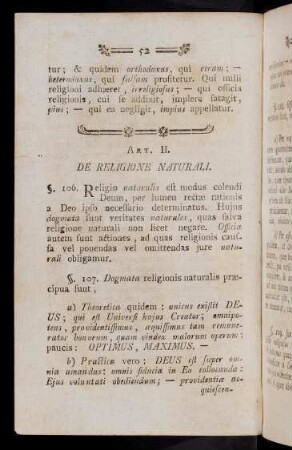 52
tur; & quidem orthodoxus, qui veram; —
heterodoxus, qui falsam profitetur. Qui nulli
religioni adhaeret, irreligiosus; — qui officia
religionis, cui se addixit, implere satagit,
pius; — qui ea negligit, impius appellatur.
ART. II.
DE RELIGIONE NATURALI.
§. 106. Religio naturalis est modus colendi
Deum, per lumen rectae rationis
a Deo ipso necessario determinatus. Hujus
dogmata sunt veritates naturales, quas salva
religione naturali non licet negare. Officia
autem sunt actiones, ad quas religionis caussa
vel ponendas vel omittendas jure natu-
rali obligamur.
§. 107. Dogmata religionis naturalis prae-
cipua sunt,
a) Theoretica quidem: unicus existit DE-
US; qui est Universi hujus Creator; omnipo-
tens, providentissimus, aequissimus tam remune-
rator bonorum, quam vindex malorum operum:
paucis: OPTIMUS, MAXIMUS. —
b) Practica vero; DEUS est super om-
nia amandus: omnis fiducia in Eo collocanda:
Ejus voluntati obediendum; — providentia ac-
quiescen-